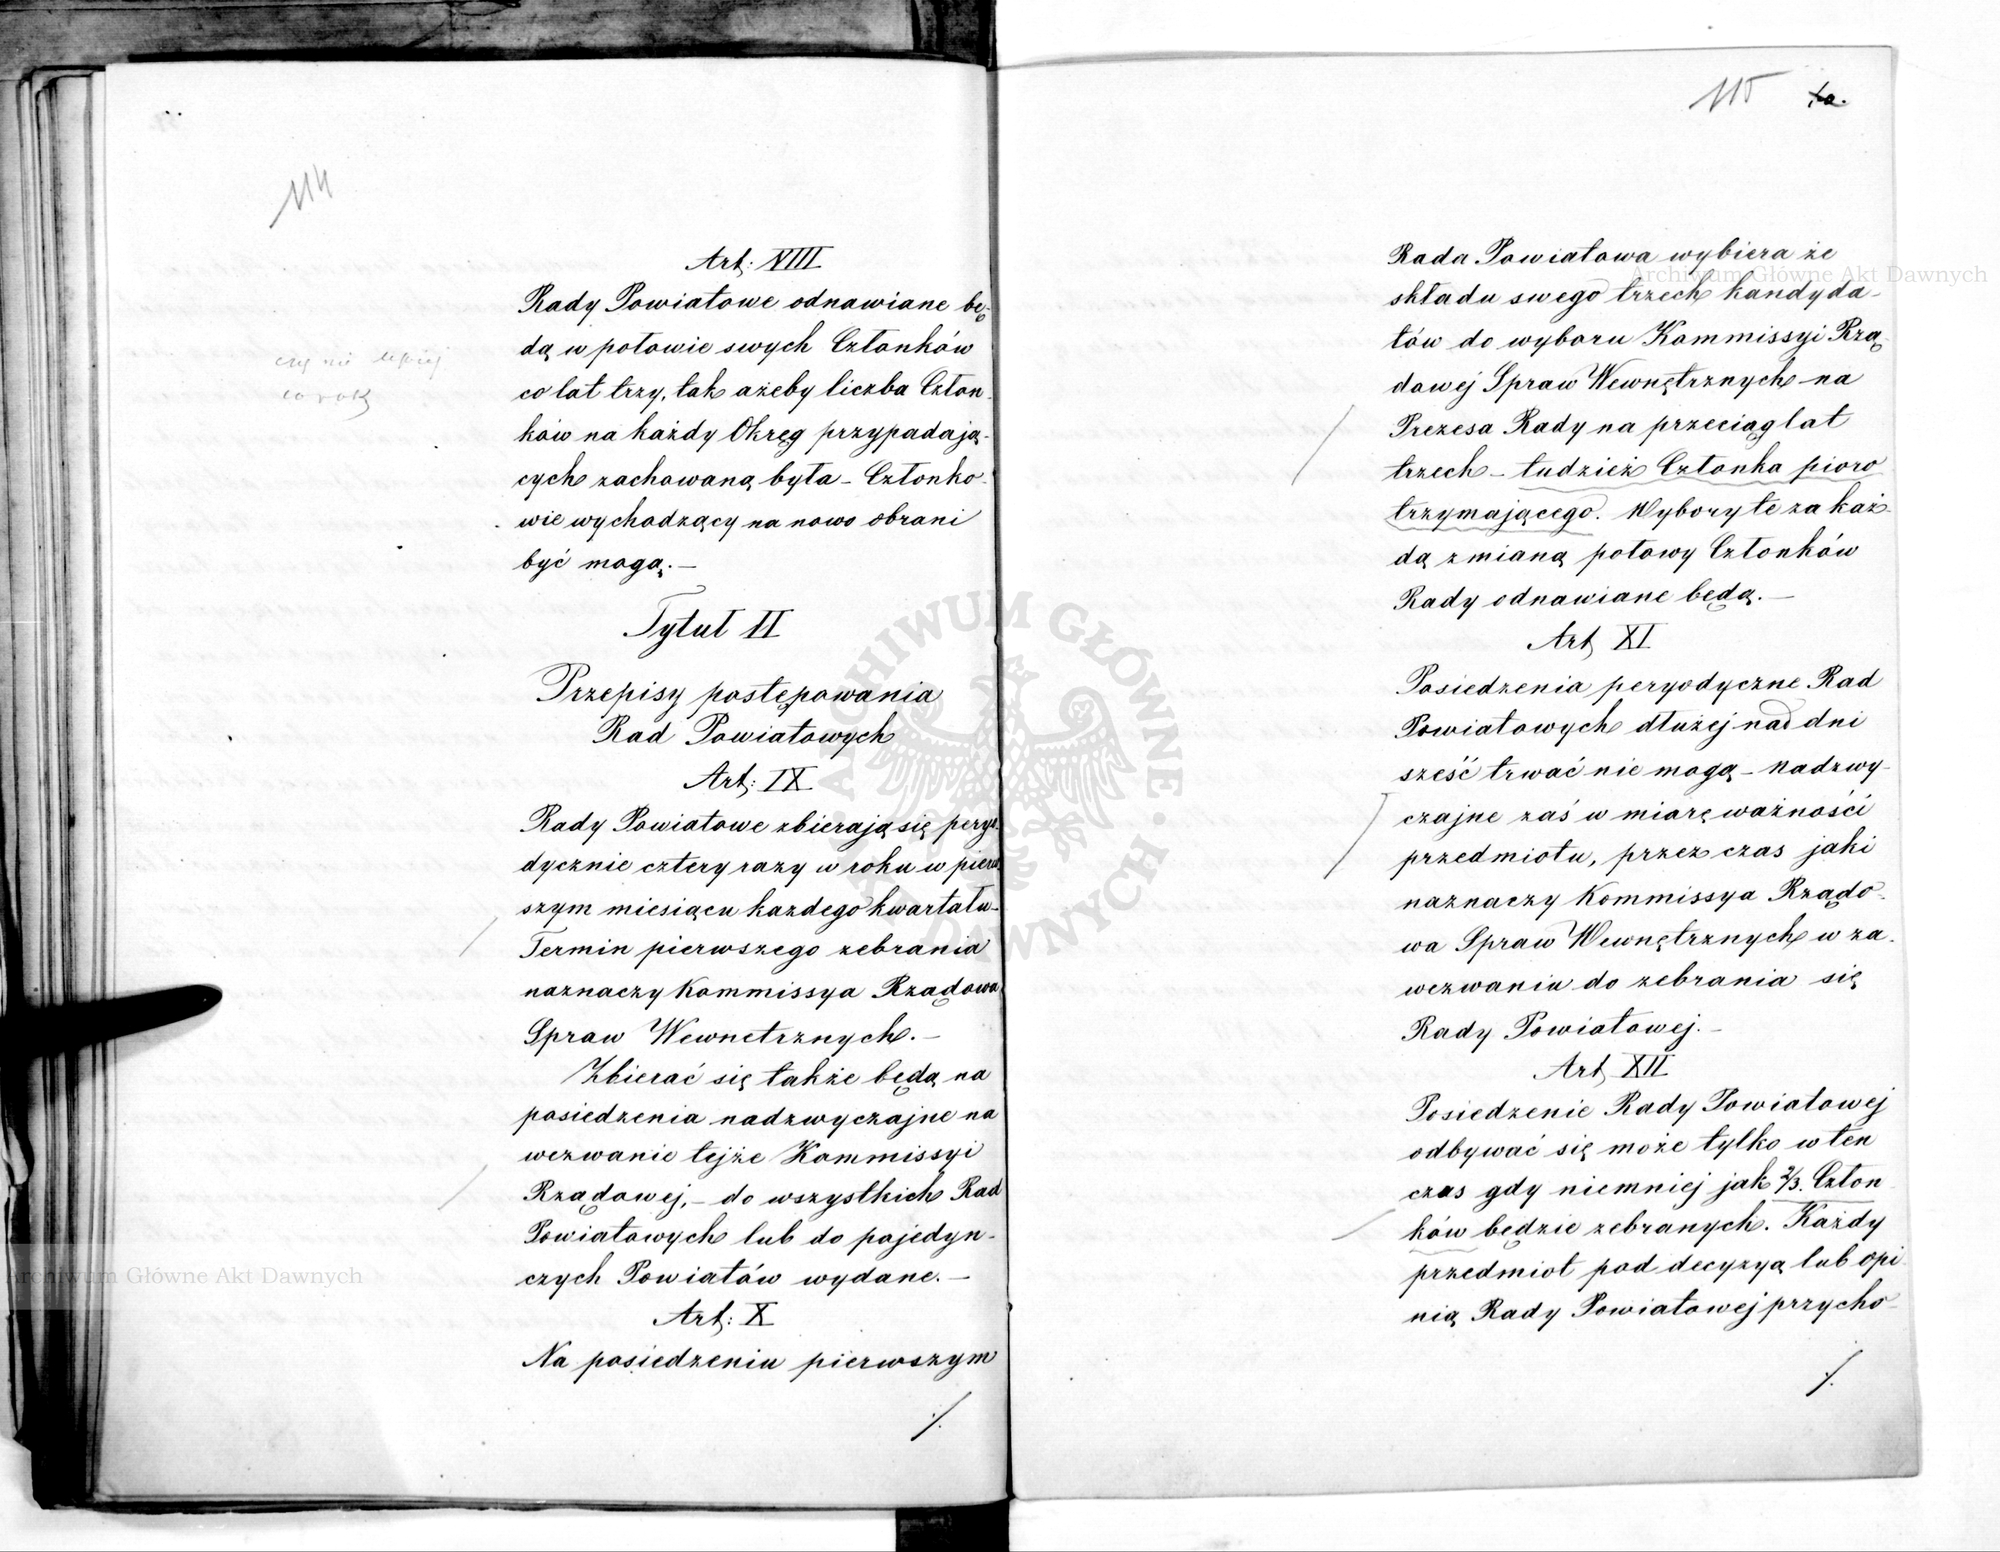 114
Art: VIII
Rady Powiatowe odnawiane bę-
dą w połowie swych Członków
co lat trzy, tak ażeby liczba Człon-
ków na każdy Okręg przypadają-
cych zachowaną była – Członko-
wie wychodzący na nowo obrani
być mogą. –
czy nie lepiej
co rok
Tytuł II
Przepisy postępowania
Rad Powiatowych
Art: IX
Rady Powiatowe zbierają się peryo-
dycznie cztery razy w roku w pierw-
szym miesiącu kazdego kwartału –
Termin pierwszego zebrania
naznaczy Kommissya Rządowa
Spraw Wewnetrznych. –
Zbierać się także będą na
posiedzenia nadzwyczajne na
wezwanie tejże Kommissyi
Rządowej, – do wszystkich Rad
Powiatowych lub do pojedyn-
czych Powiatów wydane. –
Art: X
Na posiedzeniu pierwszym
./.
115
Rada Powiatowa wybiera ze
składu swego trzech kandyda-
tów do wyboru Kommissyi Rzą-
dowej Spraw Wewnętrznych na
Prezesa Rady na przeciąg lat
trzech – tudzież Członka pioro
trzymającego. Wybory te za każ-
dą zmianą połowy Członków
Rady odnawiane będą. –
Art XI
Posiedzenia peryodyczne Rad
Powiatowych dłużej nad dni
sześć trwać nie mogą – nadzwy-
czajne zaś w miarę ważności
przedmiotu, przez czas jaki
naznaczy Kommissya Rządo-
wa Spraw Wewnętrznych w za-
wezwaniu do zebrania się
Rady Powiatowej. –
Art XII
Posiedzenie Rady Powiatowej
odbywać się może tylko w ten
czas gdy niemniej jak 2/3. Człon
ków będzie zebranych. Każdy
przedmiot pod decyzyą lub opi-
nią Rady Powiatowej przycho-
./.
Archiwum Główne Akt Dawnych
Archiwum Główne Akt Dawnych
ARCHIWUM GŁÓWNE AKT DAWNYCH